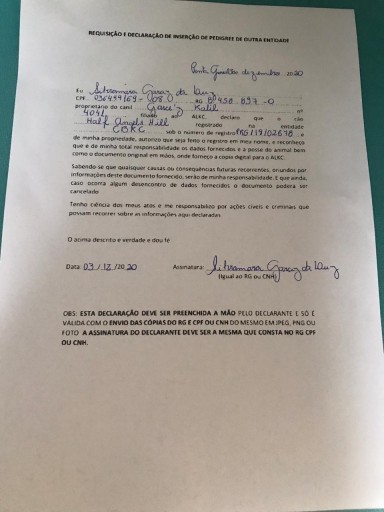 REQUISIÇÃO E DECLARAÇÃO DE INSERÇÃO DE PEDIGREE DE OUTRA ENTIDADE
dezembro, 2020
Eu
CPF RG
proprietário do canil Garcéz Kalil nº
4041 filiado a ALKC, declaro que o cão
Half Angels Hill registrado na entidade
CBKC sob o numero de registro , e
de minha propriedade, autorizo que seja feito o registro em meu nome, e reconheço
que é de minha total responsabilidade os dados fornecidos e a posse do animal bem
como o documento original em mãos, onde forneço a copia digital para o ALKC.
Sabendo-se que quaisquer causas ou consequências futuras recorrentes, oriundos por
informações deste documento fornecido, serão de minha responsabilidade. E que ainda,
caso ocorra algum desencontro de dados fornecidos o documento poderá ser
cancelado
Tenho ciência dos meus atos e me responsabilizo por ações cíveis e criminais que
possam recorrer sobre as informações aqui declaradas
O acima descrito é verdade e dou fé
Data: 03/12/2020 Assinatura:
(Igual ao RG ou CNH)
OBS: ESTA DECLARAÇÃO DEVE SER PREENCHIDA A MÃO PELO DECLARANTE E SÓ É
VÁLIDA COM O ENVIO DAS CÓPIAS DO RG E CPF OU CNH DO MESMO EM JPEG, PNG OU
FOTO A ASSINATURA DO DECLARANTE DEVE SER A MESMA QUE CONSTA NO RG CPF
OU CNH.